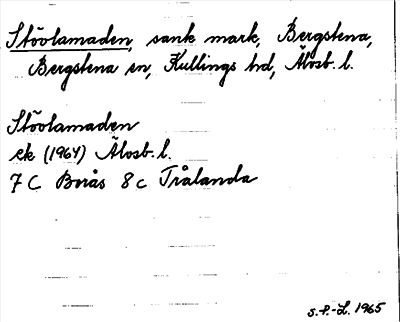 Stövlamaden, sank mark, Bergstena,
Bergstena sn, Kullings hd, Älvsb. l.
Stövlamaden
ek (1964) Älvsb. l.
7 C Borås 8 c Trålanda
S.P.-L. 1965